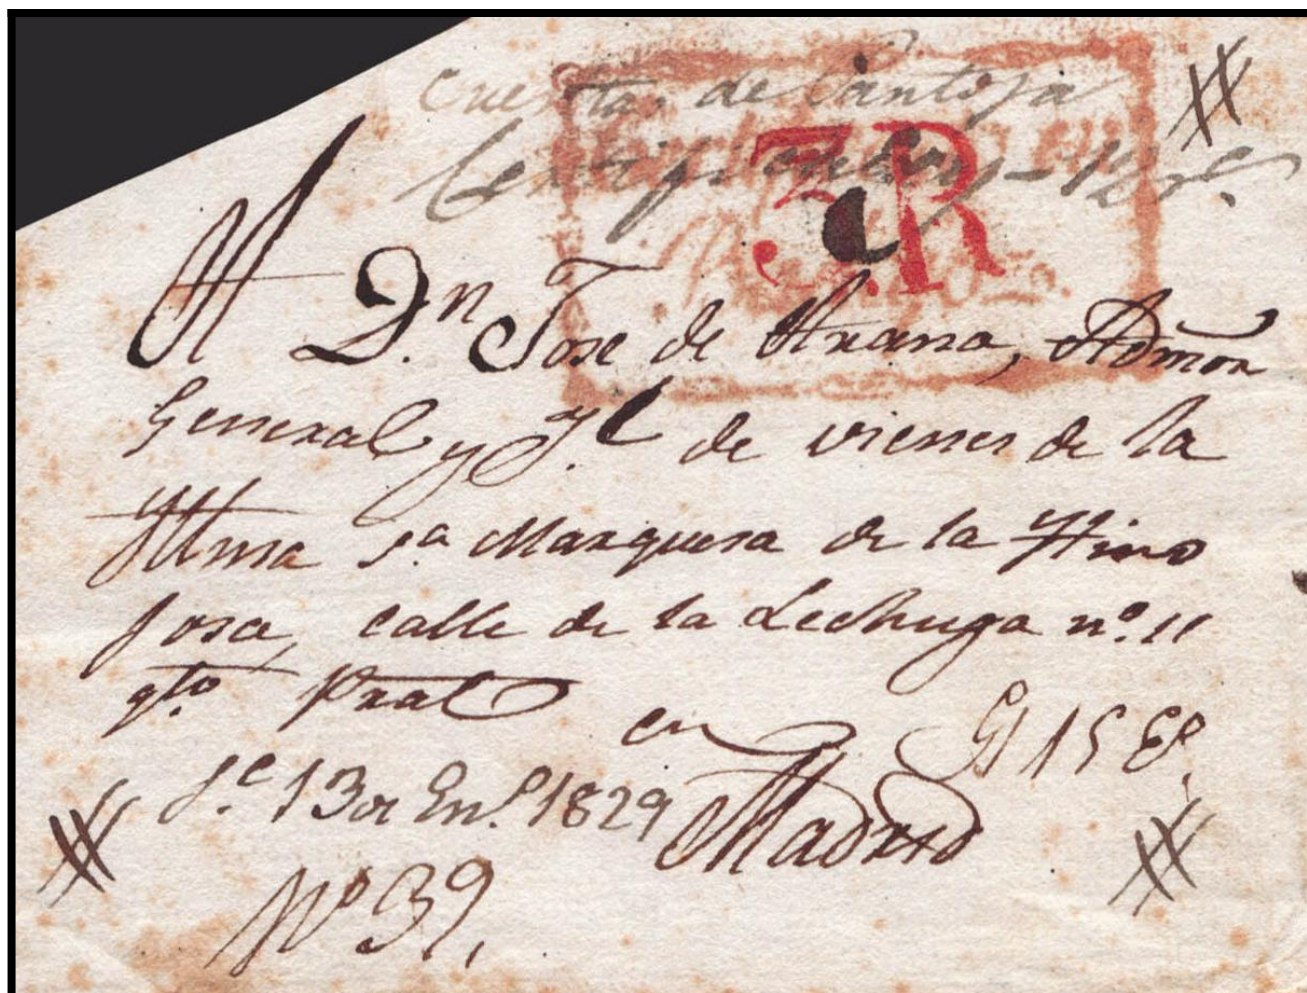 Cuentas de Pantoja
Certificado
3R
A Dn. Jose de Arana, Admor
General y Jl de vienes de la
Yllma Sa. Marquesa de la Hino
josa, calle de la Lechuga nº. 11
qto. Pral en
Madrid
G 15 Eº.
Se. 13 de Enº. 1829
Nº 39,